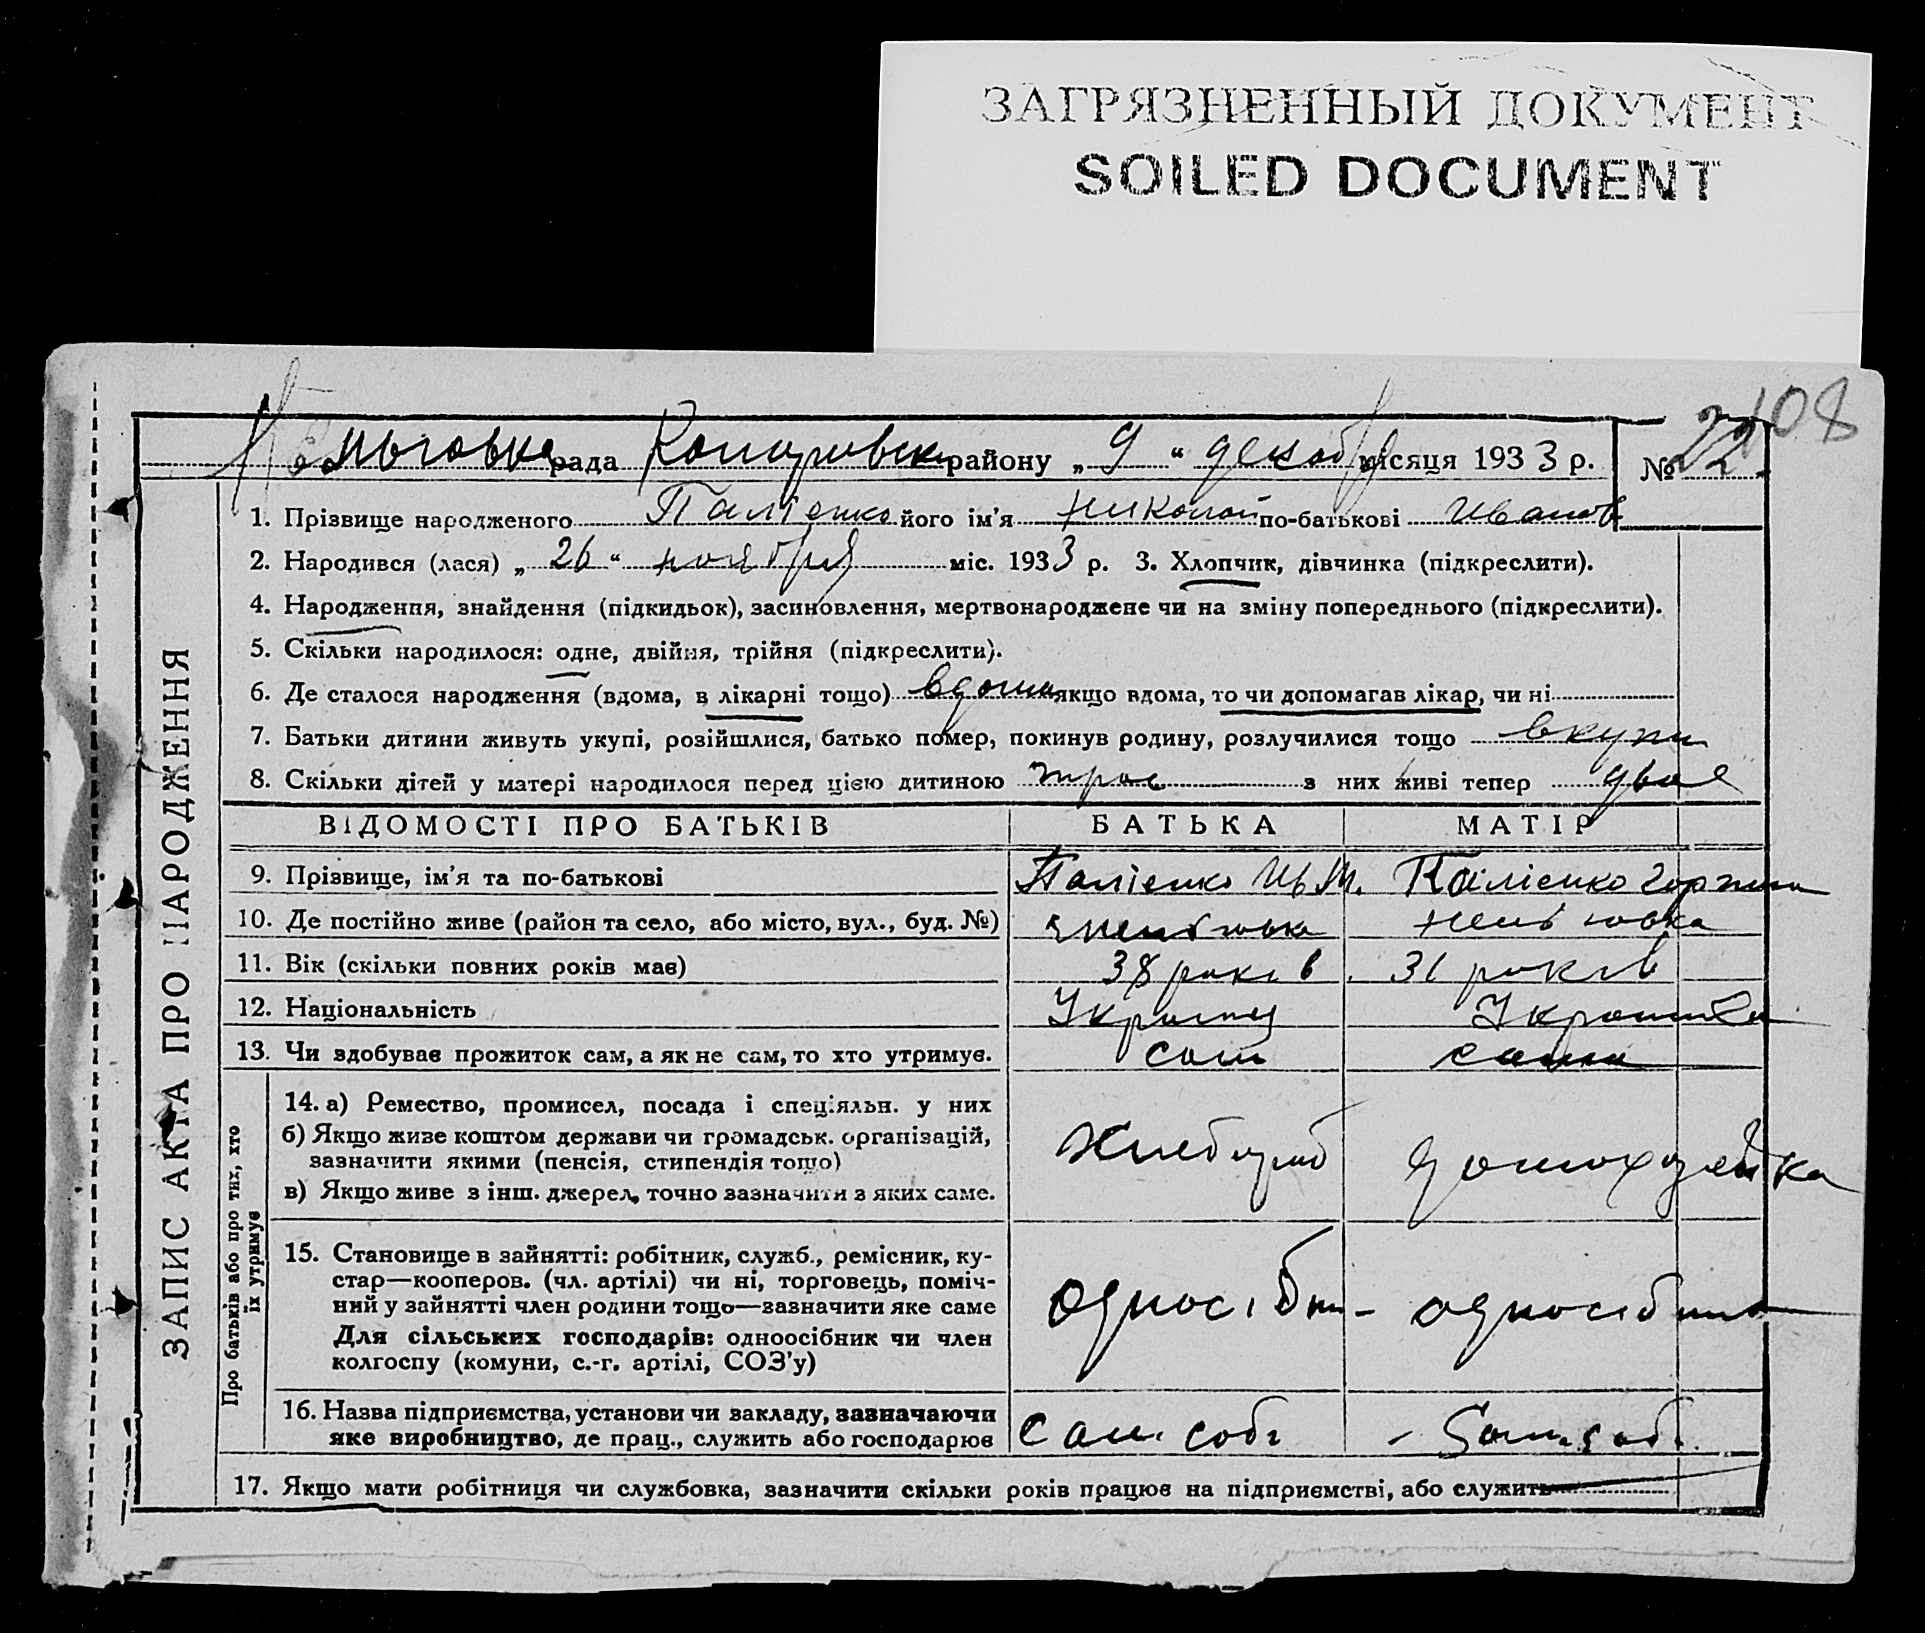 ЗАГРЯЗНЕННЫЙ ДОКУМЕНТ
SOILED DOCUMENT
108
рада району „ 9 “ декабря місяця 1933 р. № 22
1. Прізвище народженого Палієнко його ім’я Николай по-батькові Иванов
2. Народився (лася) „ 26 “ ноября міс. 1933 р. 3. Хлопчик, дівчинка (підкреслити).
4. Народження, знайдення (підкидьок), засиновлення, мертвонароджене чи на зміну попереднього (підкреслити).
5. Скільки народилося: одне, двійня, трійня (підкреслити).
6. Де сталося народження (вдома, в лікарні тощо) вдома якщо вдома, то чи допомагав лікар, чи ні
7. Батьки дитини живуть укупі, розійшлися, батько помер, покинув родину, розлучилися тощо вкупи
8. Скільки дітей у матері народилося перед цією дитиною троє з них живі тепер двоє
ЗАПИС АКТА ПРО НАРОДЖЕННЯ
ВІДОМОСТІ ПРО БАТЬКІВ БАТЬКА МАТІР
9. Прізвище, ім’я та по-батькові Палієнко Ив М. Палієнко
10. Де постійно живе (район та село, або місто, вул., буд. №)
11. Вік (скільки повних років має) 38 років 31 років
12. Національність Украінец Украинка
13. Чи здобуває прожиток сам, а як не сам, то хто утримує. сам сама
Про батьків або про тих, хто
їх утримує
14. а) Ремество, промисел, посада і спеціяльн. у них
б) Якщо живе коштом держави чи громадськ. організацій,
зазначити якими (пенсія, стипендія тощо)
в) Якщо живе з інш. джерел, точно зазначити з яких саме.
Хлебороб домохозяйка
15. Становище в зайнятті: робітник, служб., ремісник, ку-
стар—кооперов. (чл. артілі) чи ні, торговець, поміч-
ний у зайнятті член родини тощо—зазначити яке саме
Для сільських господарів: одноосібник чи член
колгоспу (комуни, с.-г. артілі, СОЗ’у)
16. Назва підприємства, установи чи закладу, зазначаючи
яке виробництво, де прац., служить або господарює
Сам. собі
17. Якщо мати робітниця чи службовка, зазначити скільки років працює на підприємстві, або служить